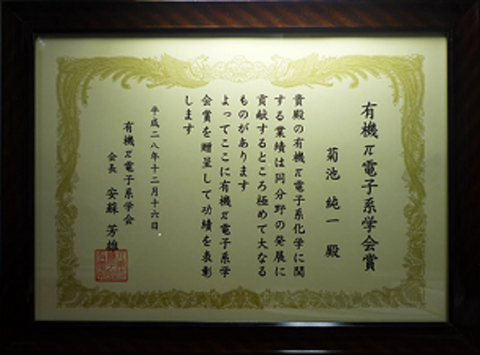 有機π電子系学会賞
菊池 純一 殿
貴殿の有機π電子系化学に関
する業績は同分野の発展に
貢献するところ極めて大なる
ものがあります
よってここに有機π電子系学
会賞を贈呈して功績を表彰
します
平成二八年十二月十六日
有機π電子系学会
会長 安蘇 芳雄